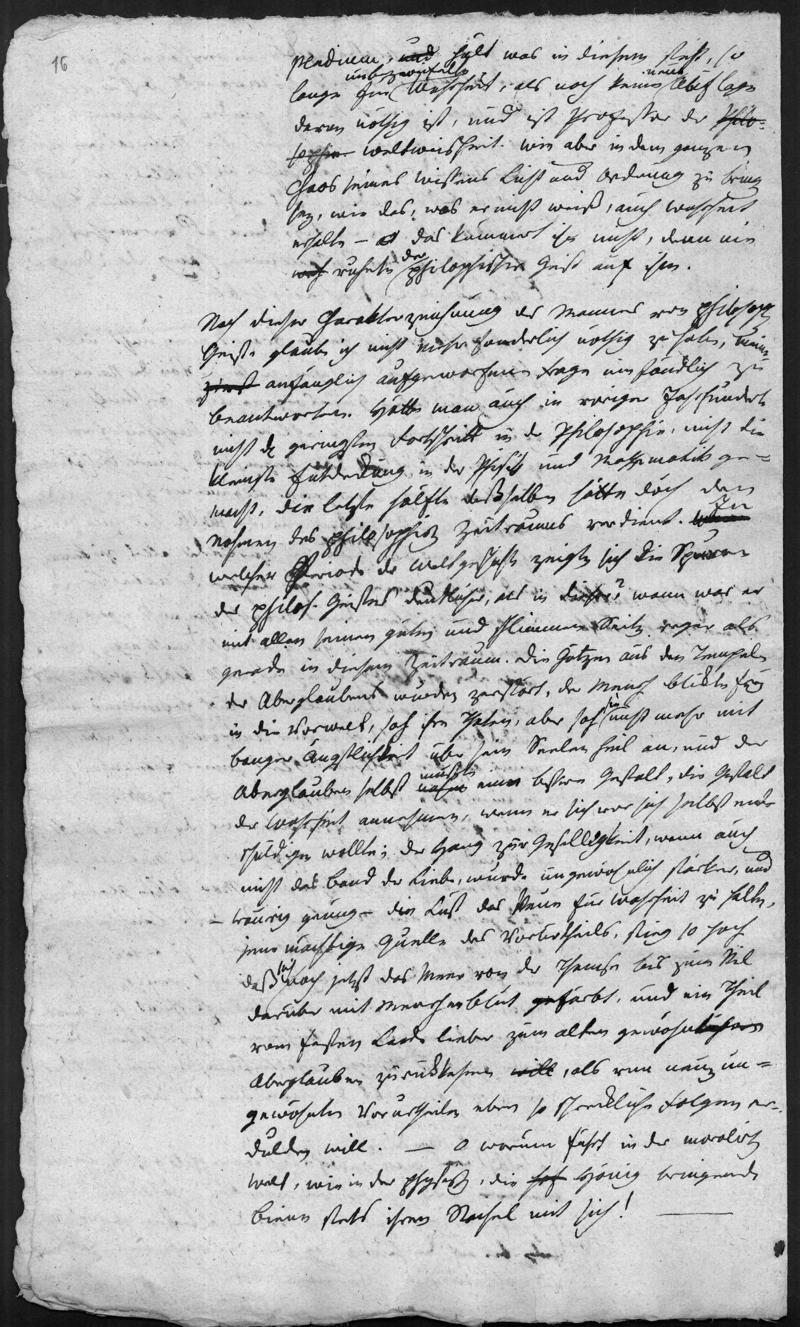 16
Medium, und hält was in diesem steht, so
unbezweifelte neue
lange für Wahrheit, als noch keine Auflage
davon nöthig ist, und ist Professor der Philo-
sophie Weltweisheit. Wie aber in dem ganzen
Chaos seines Wissens Licht und Ordnung zu bring
sey, wie das, was er nicht weiß, auch Wahrheit
erhalte – das kümmert ihn nicht, denn nie
der
ruhete philosophische Geist auf ihm.
Nach dieser Charakterzeichnung des Mannes von philosoph
Geiste glaube ich nicht mehr sonderlich nöthig zu haben, meine
zuerst anfänglich aufgeworfene Frage umständlich zu
beantworten. Hätte man auch in vorigen Jahrhundert
nicht die geringsten Fortschritt in der Philosophie, nicht die
kleinste Entdeckung in der Phisik und Mathematik ge-
macht, die letzte Hälfte desselben hätte doch den
Nahmen des philosophisch Zeitraums verdient. In
welcher Periode der Weltgeschichte zeigte sich die Spuren
des philos. Geistes deutlicher, als in dieser? wann war er
mit allen seinen guten und schlimmen Seite reger als
gerade in diesem Zeitraum. Die Götzen aus den Tempeln
des Aberglaubens wurden zerstört, der Mensch blickte hin
sie
in die Vorwelt, sah ihre Thaten, aber sah nicht mehr mit
banger Ängstlichkeit über sein Seelenheil an, und der
mußte
Aberglauben selbst nahm eine bessere Gestalt, die Gestalt
der Wahrheit annehmen, wenn er sich vor sich selbst ent-
schuldigen wollte; der Hang zur Geselligkeit, wenn auch
nicht das Band der Liebe, wurde ungewöhnlich stärker, und
– traurig genug – die Lust das Neue für Wahrheit zu halten,
jene mächtige Quelle des Vorurtheils, stieg so hoch
sich
daß noch jetzt das Meer von der Themse bis zum Nil
darüber mit Menschenblut gefärbt, und ein Theil
vom festen Lande lieber zum alten gewöhnlichen
Aberglauben zurückkehren will, als von neuen un-
gewöhnten Vorurtheilen eben so schreckliche Folgen er-
dulden will. — O warum führt in der moralisch
Welt, wie in der physisch, die Honig bringende
Biene stets ihren Stachel mit sich! —